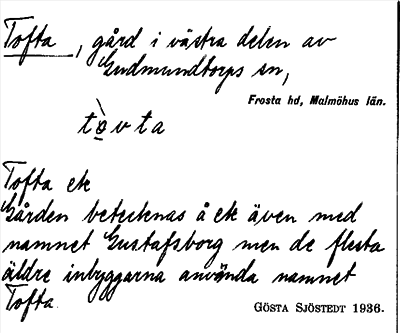 Tofta, gård i västra delen av
Gudmundtorps sn,
Frosta hd, Malmöhus län.
tòvta
Tofta ek
Gården betecknas å ek även med
namnet Gustafsborg men de flesta
äldre inbyggarna använda namnet
Tofta.
GÖSTA SJÖSTEDT 1936.